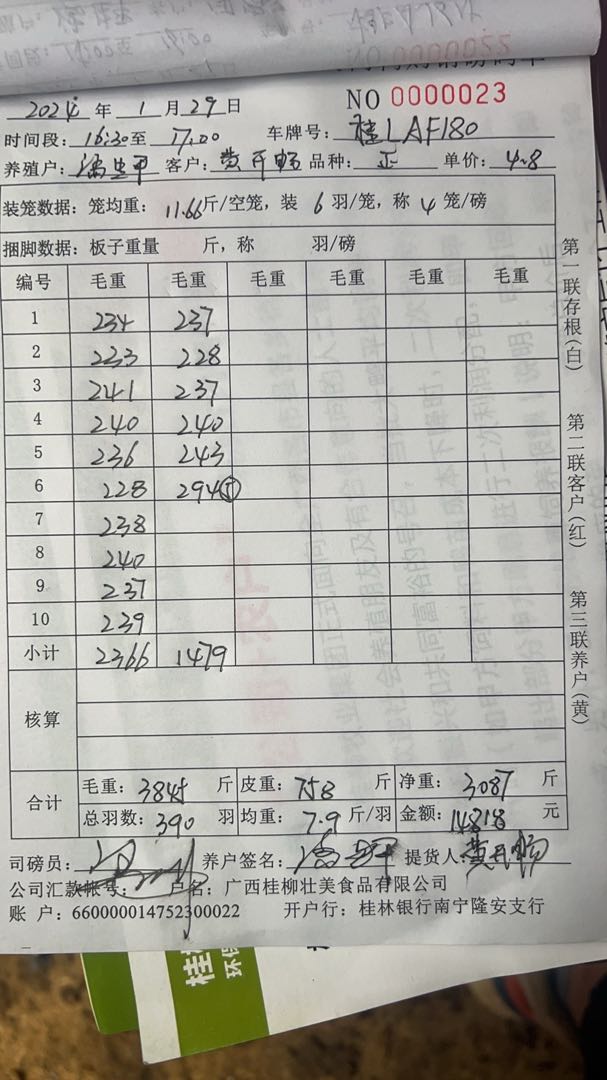 NO 0000055
NO 0000023
2024 年 1 月 29 日
时间段: 16:30 至 17:00 车牌号: 桂LAF180
养殖户: 客户: 黄开畅 品种: 正 单价: 4.8
装笼数据: 笼均重: 11.66 斤/空笼, 装 6 羽/笼, 称 4 笼/磅
捆脚数据: 板子重量 斤, 称 羽/磅
编号 毛重 毛重 毛重 毛重 毛重 毛重
1 234 237
2 233 228
3 241 237
4 240 240
5 236 243
6 228 294⑤
7 238
8 240
9 237
10 239
小计 2366 1479
核算
合计 毛重: 3845 斤 皮重: 758 斤 净重: 3087 斤
总羽数: 390 羽 均重: 7.9 斤/羽 金额: 14818 元
司磅员: 养户签名: 提货人: 黄开畅
公司汇款帐号: 户名: 广西桂柳壮美食品有限公司
账 户: 660000014752300022 开户行: 桂林银行南宁隆安支行
第一联存根(白)
第二联客户(红)
第三联养户(黄)